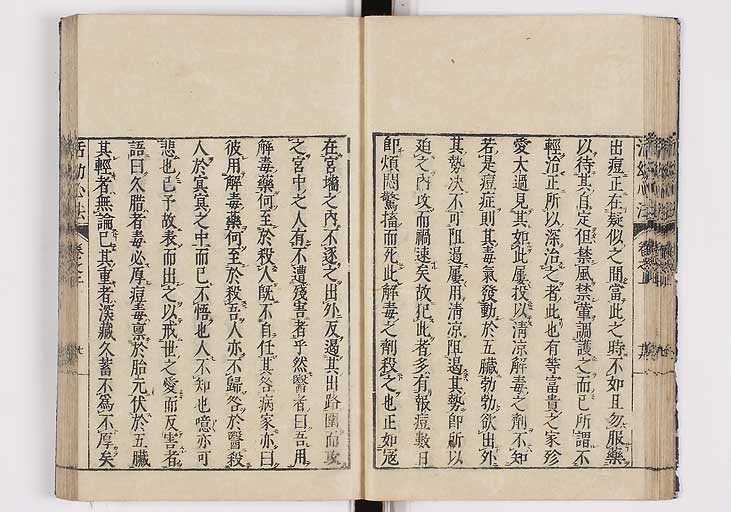 出痘正在疑似之間當此之時不如且勿服藥
以待其自定但禁風禁葷調護之而已所謂不
輕治正所以深治之者此也有等富貴之家珍
愛大過見其如此屢投以清凉解毒之劑不知
若是痘症則其毒氣發動於五臟勃勃欲出外
其勢决不可阻遏屢用清凉阻遏其勢卽所以
廹之內攻而禍速矣故犯此者多有報痘數日
卽煩悶驚搐而死此解毒之劑殺之也正如冦
在宮墻之內不逐之出外反遏其出路圍而攻
之宮中之人有不遭殘害者乎然醫者曰吾用
解毒藥何至於殺人旣不自任其咎病家亦曰
彼用解毒藥何至於殺吾人亦不歸咎於醫殺
人於冥冥之中而巳不悟也人不知也噫亦可
悲也巳予故表而出之以戒世之愛而反害者
語曰久腊者毒必厚痘毒禀於胎元伏於五臟
其輕者無論巳其重者深藏久蓄不爲不厚矣
活幼心法
卷之二